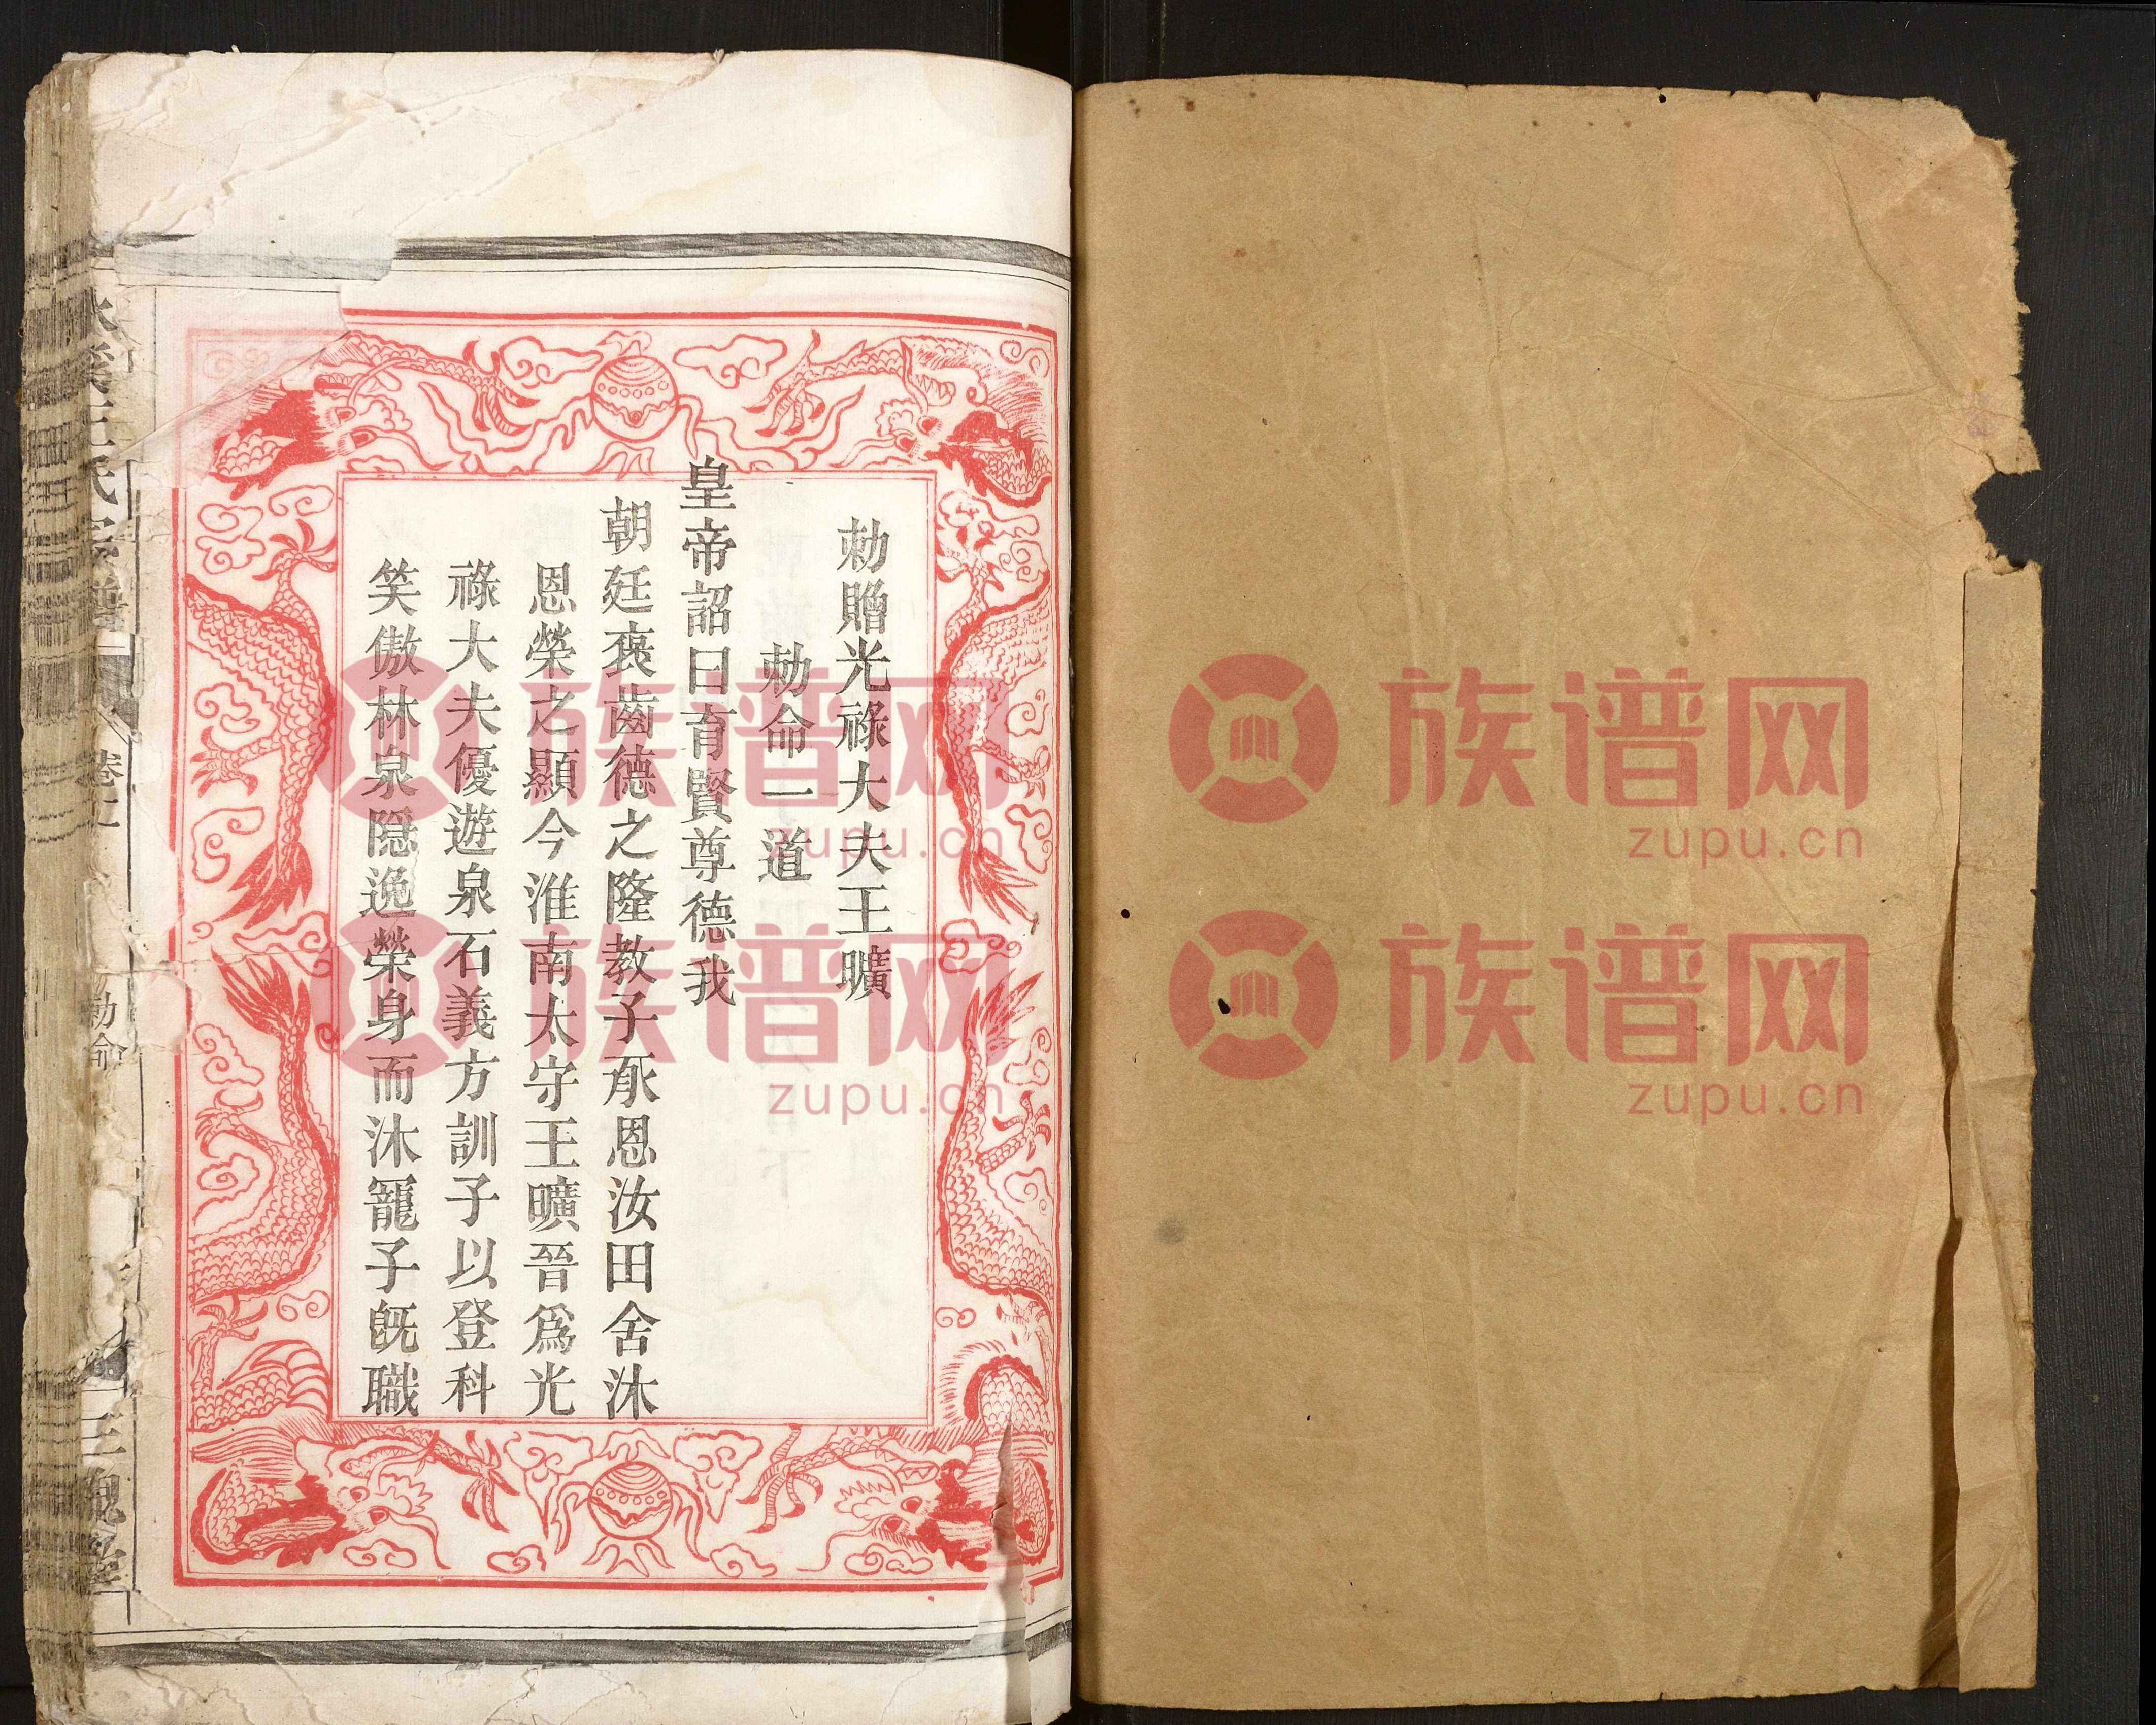 勅贈光祿大夫王曠
勅命一道
皇帝詔曰育賢尊德我
朝廷褒齒德之隆教子承恩汝田舍沐
恩榮之顯今淮南太守王曠晉爲光
祿大夫優遊泉石義方訓子以登科
笑傲林泉隐逸榮身而沐寵子旣職
王氏宗譜
卷
勅命
三槐堂
族谱网
zupu.cn
族谱网
zupu.cn
族谱网
zupu.cn
族谱网
zupu.cn